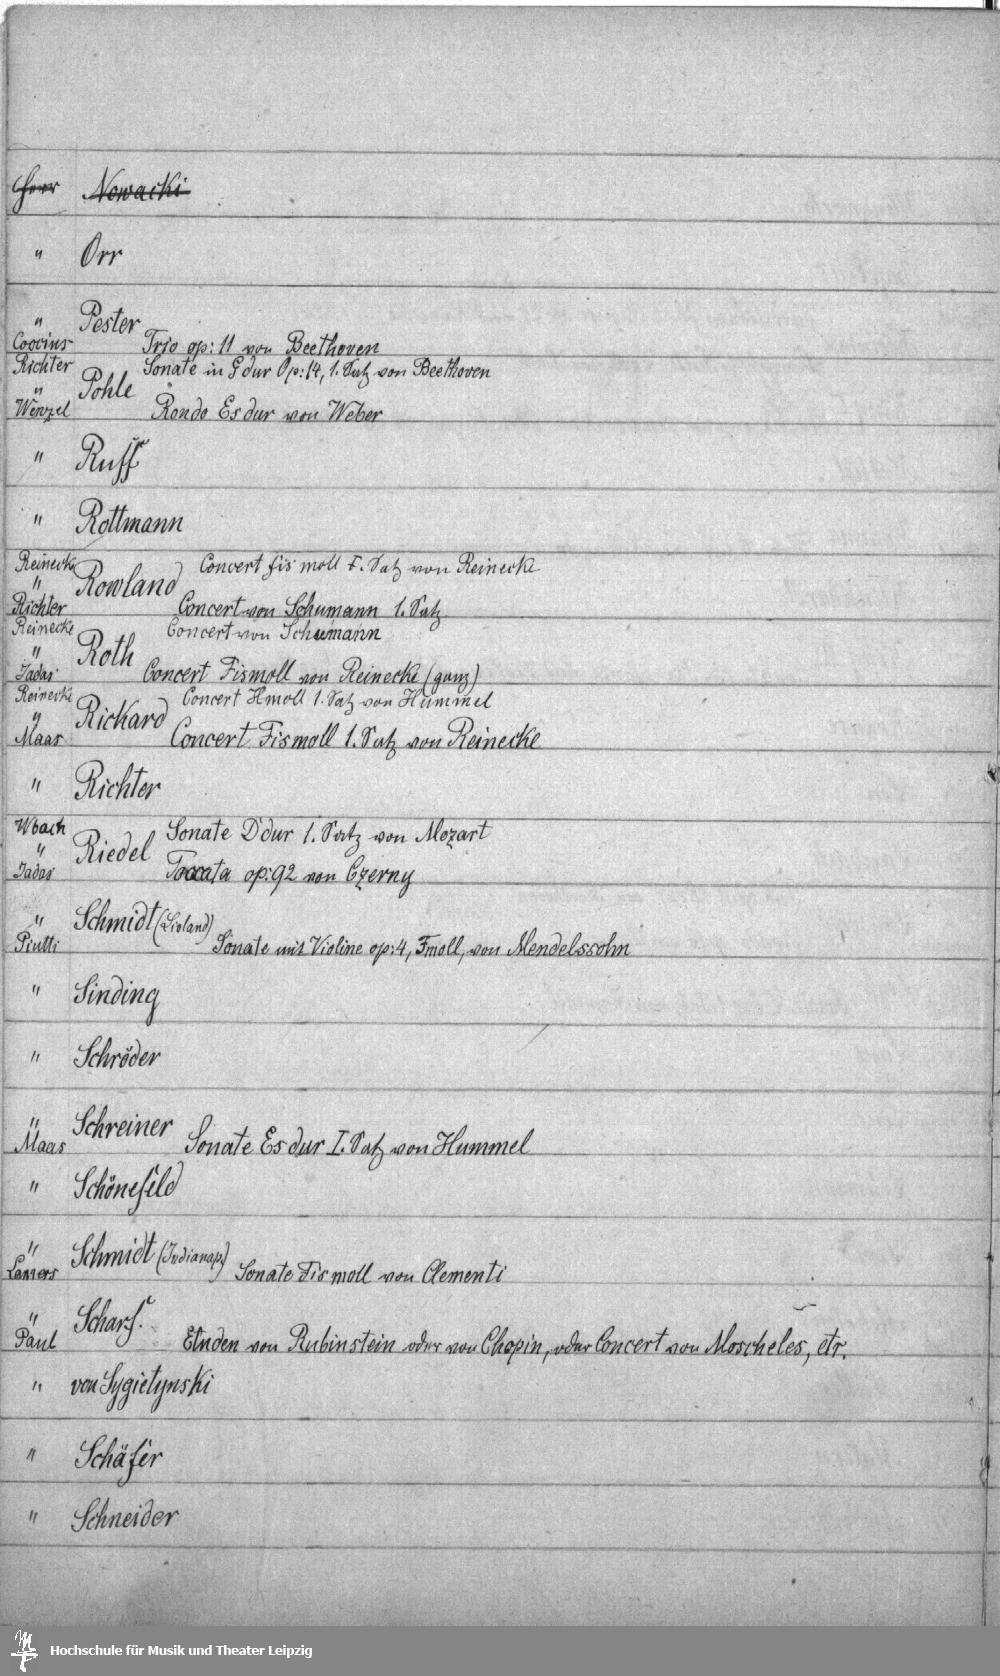 Herr Nowacki
" Orr
" Pester
Coccius Trio op: 11 von Beethoven
Richter Sonate in G dur Op: 14, 1. Satz von Beethoven
" Pohle
Wenzel Rondo Es dur von Weber
" Ruff
" Rottmann
Reinecke Concert fis moll I. Satz von Reinecke
" Rowland
Richter Concert von Schumann 1. Satz
Reinecke Concert von Schumann
" Roth
Jadas. Concert Fismoll von Reinecke (ganz)
Reinecke Concert Hmoll 1. Satz von Hummel
" Rickard
Maas Concert Fismoll 1. Satz von Reinecke
" Richter
Wbach Sonate D dur 1. Satz von Mozart
" Riedel
Jadas. Toccata op: 92 von Czerny
" Schmidt (Livland)
Piutti Sonate mit Violine op: 4, Fmoll, von Mendelssohn
" Sinding
" Schröder
" Schreiner
Maas Sonate Es dur I. Satz von Hummel
" Schönefeld
" Schmidt (Indianap.)
Lamers Sonate Fis moll von Clementi
" Scharf.
Paul Etuden von Rubinstein oder von Chopin, oder Concert von Moscheles, etr.
" von Sygietynski
" Schäfer
" Schneider
Hochschule für Musik und Theater Leipzig